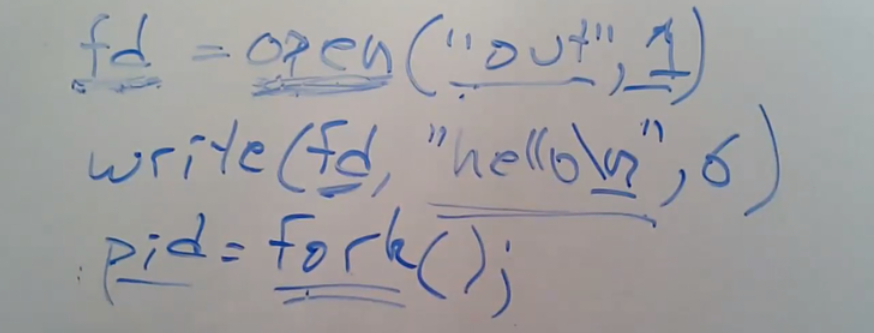 fd = open("out", 1)
write(fd, "hello\n", 6)
pid = fork();